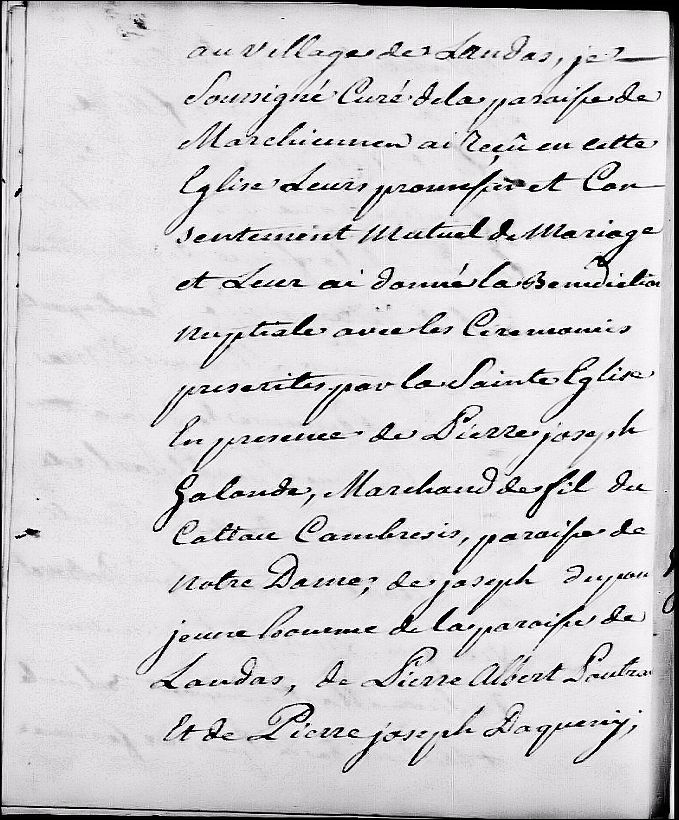 au village de Landas, je
soussigné Curé dela paroisse de
Marchiennes ai reçû en cette
Eglise Leurs promesses et Con
sentement Mutuel de Mariage
et Leur ai donné la Benediction
Nuptiale avec les Ceremonies
prescrites par la Sainte Eglise
En presence de Pierre joseph
Galande, Marchand de fil du
Cattau Cambresis, paroisse de
Notre Dame; de joseph
jeune homme de la paroisse de
Landas, de Pierre Albert
Et de Pierre joseph